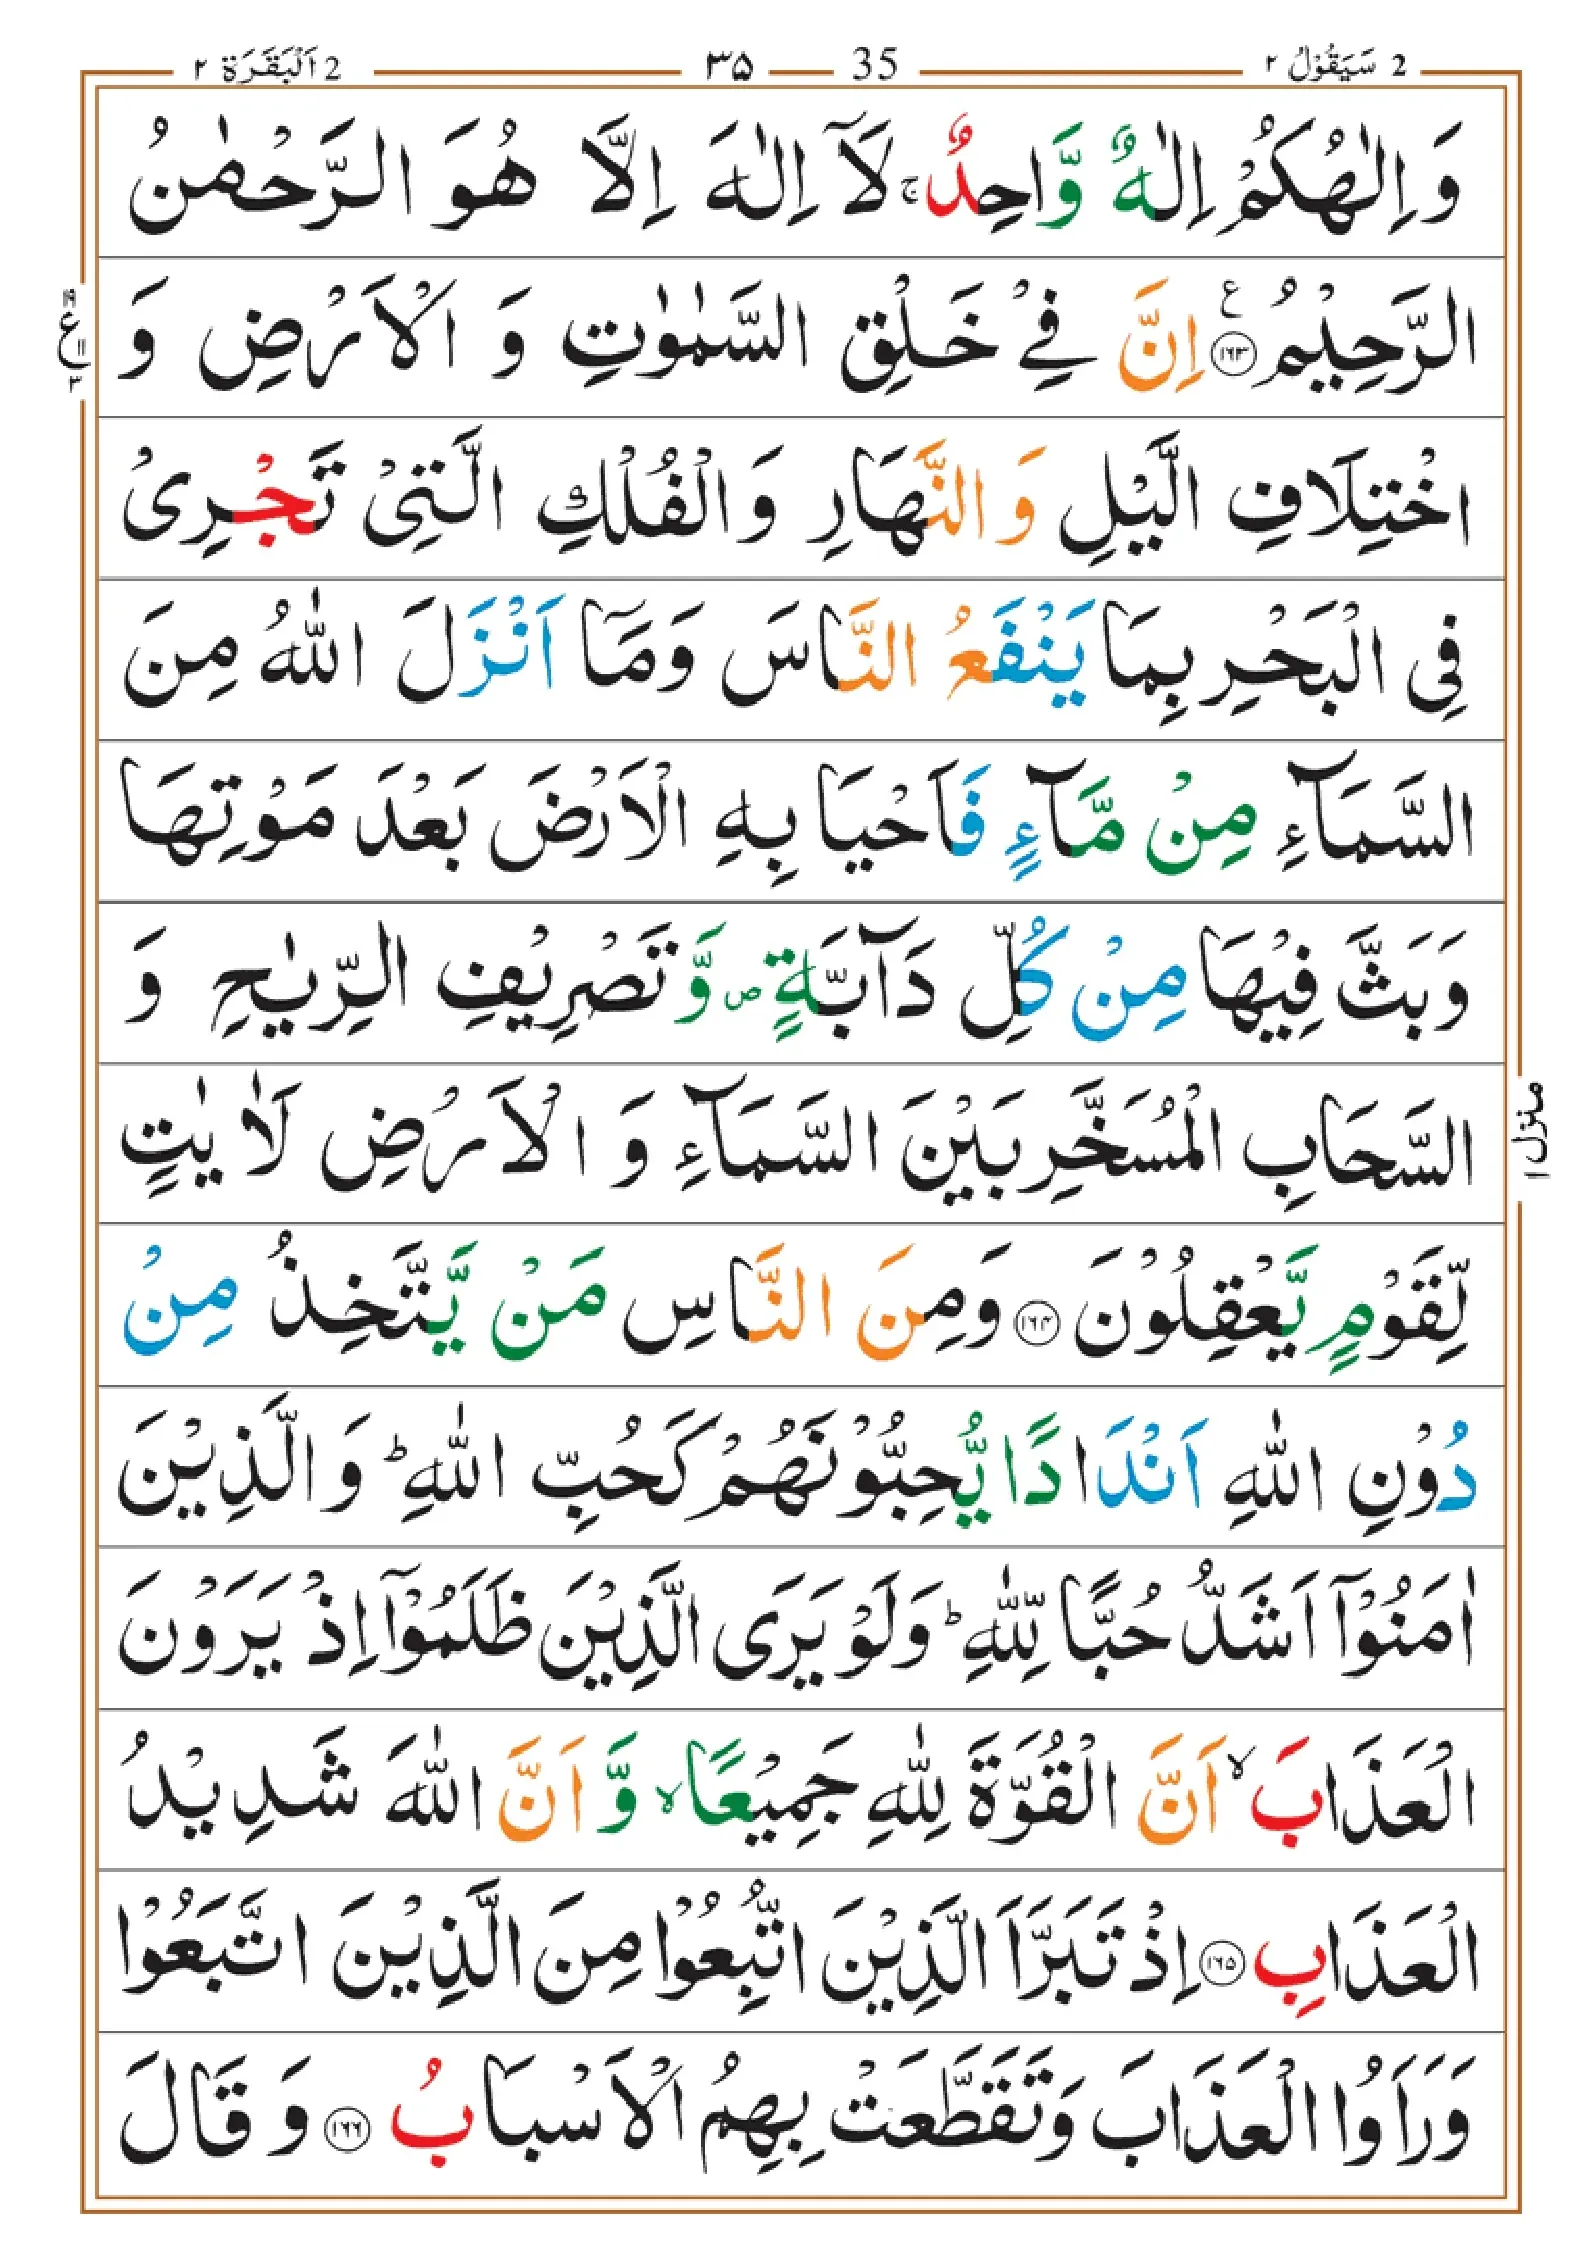 2 سَيَقُوْلُ ٢ 35 ٣٥ 2 اَلْبَقَرَة ٢
وَاِلٰهُكُمْ اِلٰهٌ وَّاحِدٌ ۚ لَاۤ اِلٰهَ اِلَّا هُوَ الرَّحْمٰنُ
الرَّحِيْمُ ﴿۱۶۳﴾ ع اِنَّ فِيْ خَلْقِ السَّمٰوٰتِ وَ الْاَرْضِ وَ
١٩ ع ١١ ٣
اخْتِلَافِ الَّيْلِ وَ النَّهَارِ وَالْفُلْكِ الَّتِيْ تَجْرِىْ
فِى الْبَحْرِ بِمَا يَنْفَعُ النَّاسَ وَمَاۤ اَنْزَلَ اللّٰهُ مِنَ
السَّمَآءِ مِنْ مَّآءٍ فَاَحْيَا بِهِ الْاَرْضَ بَعْدَ مَوْتِهَا
وَبَثَّ فِيْهَا مِنْ كُلِّ دَآبَّةٍ ص وَّ تَصْرِيْفِ الرِّيٰحِ وَ
السَّحَابِ الْمُسَخَّرِ بَيْنَ السَّمَآءِ وَ الْاَرْضِ لَاٰيٰتٍ
منزل ١
لِّقَوْمٍ يَّعْقِلُوْنَ ﴿۱۶۴﴾ وَمِنَ النَّاسِ مَنْ يَّتَّخِذُ مِنْ
دُوْنِ اللّٰهِ اَنْدَادًا يُّحِبُّوْنَهُمْ كَحُبِّ اللّٰهِ ؕ وَالَّذِيْنَ
اٰمَنُوْۤا اَشَدُّ حُبًّا لِّلّٰهِ ؕ وَلَوْ يَرَى الَّذِيْنَ ظَلَمُوْۤا اِذْ يَرَوْنَ
الْعَذَابَ ۙ اَنَّ الْقُوَّةَ لِلّٰهِ جَمِيْعًا ۙ وَّ اَنَّ اللّٰهَ شَدِيْدُ
الْعَذَابِ ﴿۱۶۵﴾ اِذْ تَبَرَّاَ الَّذِيْنَ اتُّبِعُوْا مِنَ الَّذِيْنَ اتَّبَعُوْا
وَرَاَوُا الْعَذَابَ وَتَقَطَّعَتْ بِهِمُ الْاَسْبَابُ ﴿۱۶۶﴾ وَ قَالَ